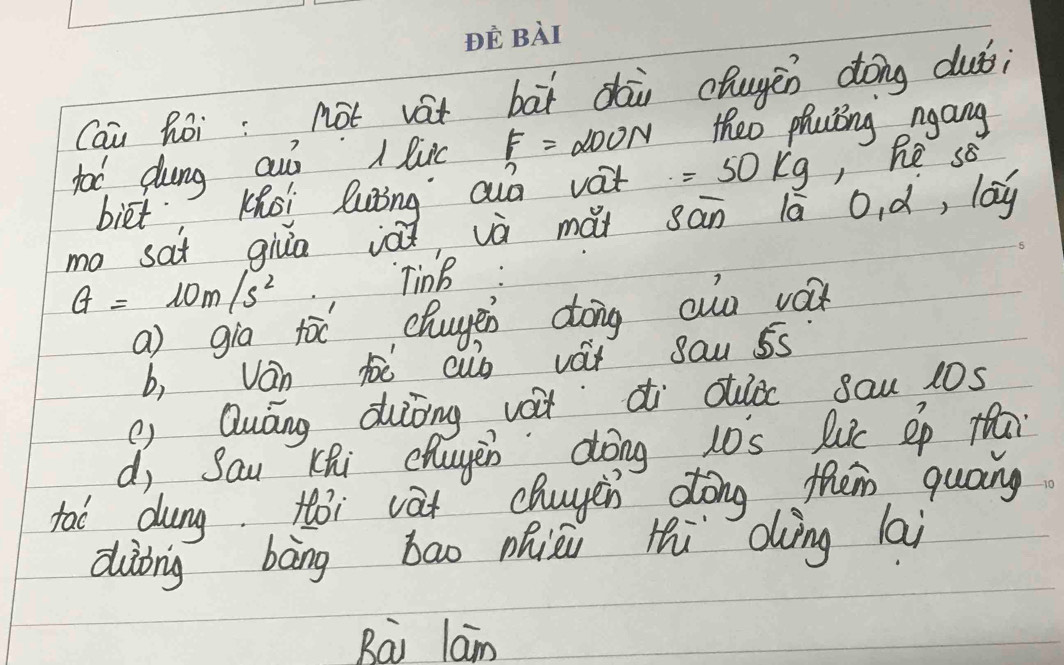 ĐỀ BÀI
Câu hỏi : Một vật bắt đầu chuyển động dưới
tác dụng của 1 lực F = 200N theo phương ngang
biết khối lượng của vật = 50 Kg, hệ số
ma sát giữa vật và mặt sàn là 0,2, lấy
G = 10m/s². Tính :
a) gia tốc chuyển động của vật
b, Vận tốc của vật sau 5s
c) Quãng đường vật đi được sau 10s
d, Sau khi chuyển động 10s lực ép thôi
tác dụng. Hỏi vật chuyển động thêm quãng
đường bằng bao nhiêu thì dừng lại
Bài làm
5
10